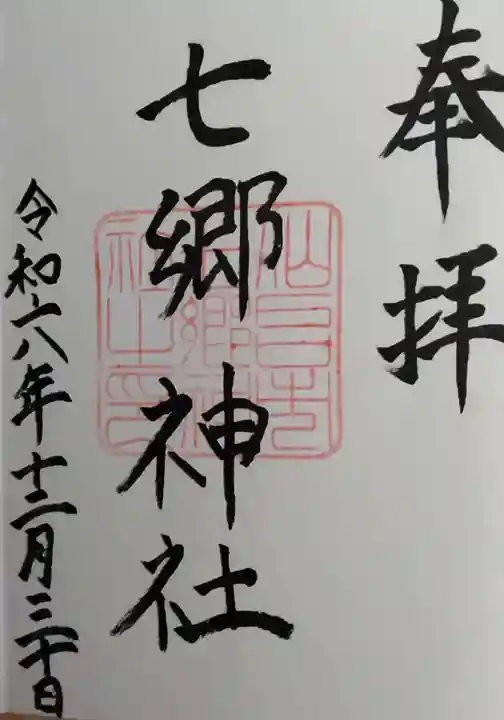 奉拝
七郷神社
令和六年十二月三十日